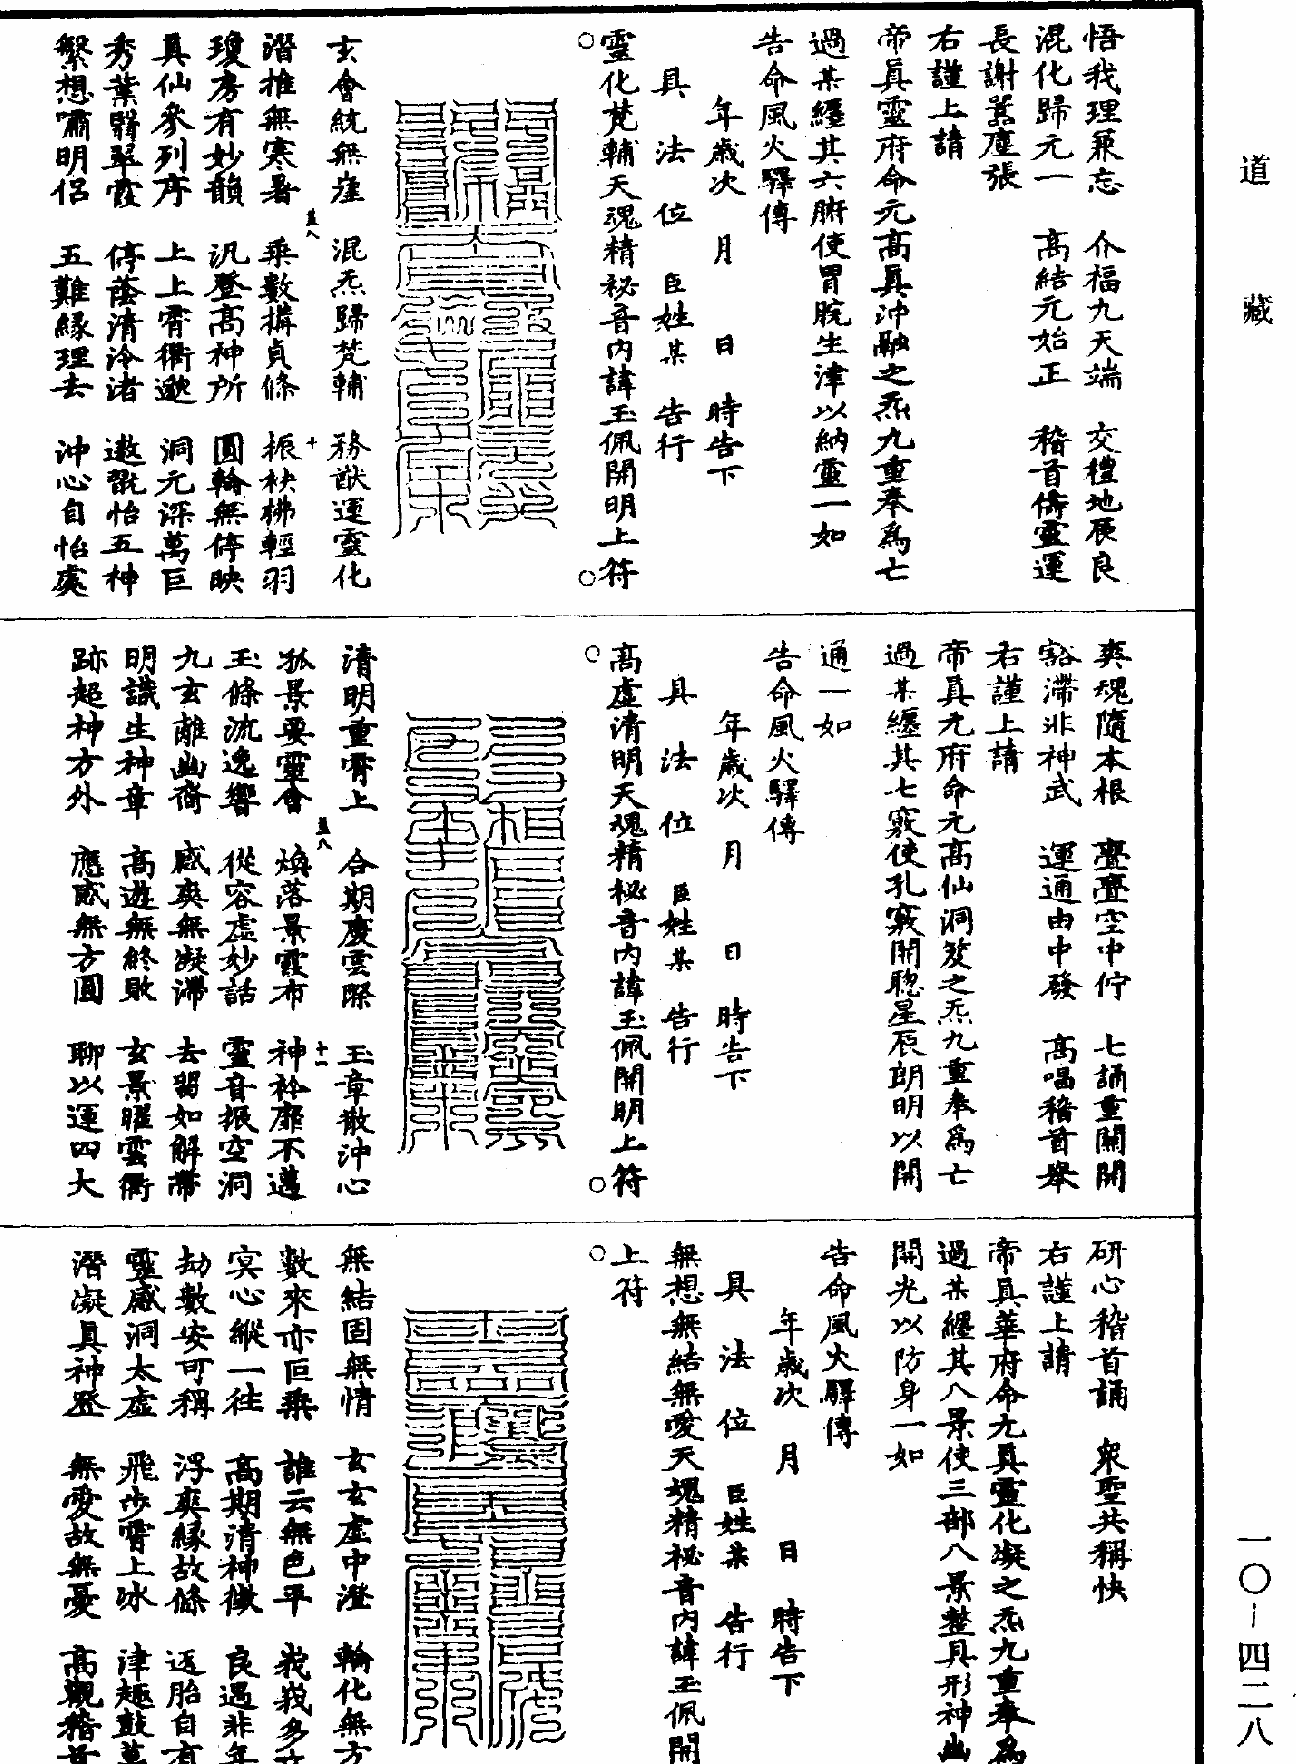 道藏
一〇—四二八
悟我理兼忘　介福九天端　交禮地戾良
混化歸元一　高結元始正　稽首儔靈運
長謝囂塵張
右謹上請
帝真靈府命元高真沖融之炁九重奉為亡
過某纏其六腑使胃脘生津以納靈一如
告命風火驛傳
年歲次　月　日　時告下
具　法　位　臣姓某　告行
靈化梵輔天魂精祕音內諱玉佩開明上符
玄會統無崖　混炁歸梵輔　務猷運靈化
潛推無寒暑　乘數構貞條　振袂拂輕羽
瓊房有妙韻　汎登高神所　圓輪無停映
真仙參列序　上上霄衢邈　洞元深萬巨
秀葉翳翠霞　停蔭清泠渚　遨翫怡五神
繄想嘯明侶　五難緣理去　沖心自怡處
爽魂隨本根　亹亹空中佇　七誦重關開
豁滯非神武　運通由中發　高唱稽首舉
右謹上請
帝真元府命元高仙洞笈之炁九重奉為亡
過某纏其七竅使孔竅開聰星辰朗明以開
通一如
告命風火驛傳
年歲次　月　日　時告下
具　法　位　臣姓某　告行
高虛清明天魂精祕音內諱玉佩開明上符
清明重霄上　合期慶雲際　玉章散沖心
孤景要靈會　煥落景霞布　神衿靡不邁
玉條流逸響　從容虛妙話　靈音振空洞
九玄離幽裔　感爽無凝滯　去習如解帶
明識生神章　高遊無終敗　玄景曜雲衢
跡超神方外　應感無方圓　聊以運四大
研心稽首誦　眾聖共稱快
右謹上請
帝真華府命元真靈化凝之炁九重奉為
過某纏其八景使三部八景整具形神幽
開光以防身一如
告命風火驛傳
年歲次　月　日　時告下
具　法　位　臣姓某　告行
無想無結無愛天魂精祕音內諱玉佩開
上符
無結固無情　玄玄虛中澄　輪化無方
數來亦叵乘　誰云無色平　峩峩多
冥心縱一往　高期清神徵　良遇非年
劫數安可稱　浮爽緣故條　迈胎自有
靈感洞太虛　飛步霄上冰　津趣鼓萬
潛凝真神登　無愛故無憂　高觀稽首